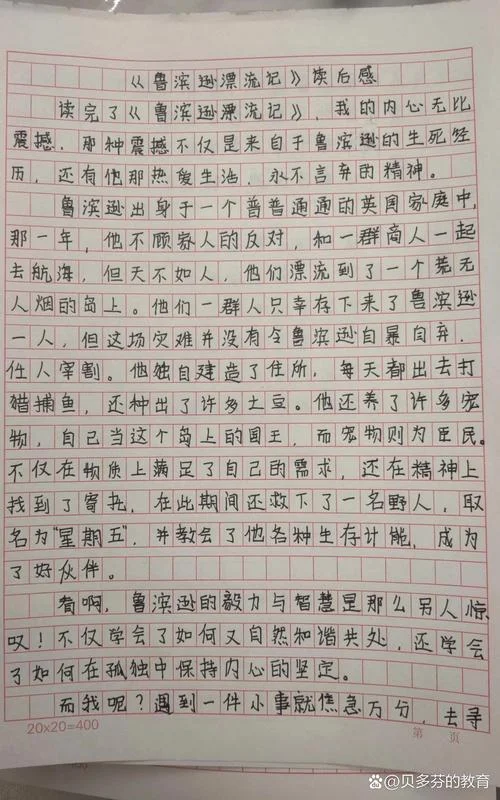 《鲁滨逊漂流记》读后感
读完了《鲁滨逊漂流记》，我的内心无比
震撼，那种震撼不仅是来自于鲁滨逊的生死经
历，还有他那热爱生活，永不言弃的精神。
鲁滨逊出身于一个普普通通的英国家庭中，
那一年，他不顾家人的反对，和一群商人一起
去航海，但天不如人，他们漂流到了一个荒无
人烟的岛上。他们一群人只幸存下来了鲁滨逊
一人，但这场灾难并没有令鲁滨逊自暴自弃，
任人宰割。他独自建造了住所，每天都出去打
猎捕鱼，还种出了许多土豆。他还养了许多宠
物，自己当这个岛上的国王，而宠物则为臣民。
不仅在物质上满足了自己的需求，还在精神上
找到了寄托，在此期间还救下了一名野人，取
名为"星期五"，并教会了他各种生存计能，成为
了好伙伴。
看啊，鲁滨逊的毅力与智慧是那么另人惊
叹！不仅学会了如何又自然和谐共处，还学会
了如何在孤独中保持内心的坚定。
而我呢？遇到一件小事就焦急万分，去寻
20×20=400
第 页
贝多芬的教育